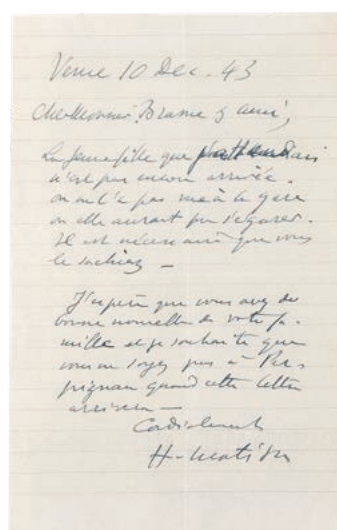 Vence 10 Dec. 43
Cher Monsieur Brame & ami,
La jeune fille que
n'est pas encore arrivée.
on ne l'a pas vue à la gare
où elle aurait pu s'égarer.
Il est nécessaire que vous
le sachiez —
J'espère que vous avez de
bonne nouvelles de votre fa-
mille et je souhaite que
vous ne soyez pas à Per-
pignan quand cette lettre
arrivera —
Cordialement
H. Matisse